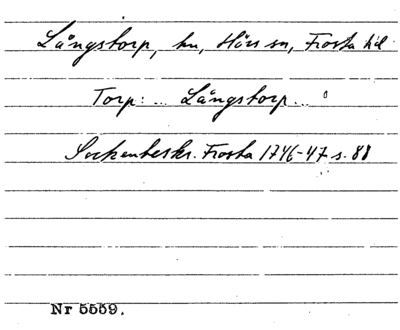 Långstorp, hu, Hörs sn, Frosta hd
Torp: ... Långstorp ...
Sockenbeskr. Frosta 1746-47 s. 88
Nr 5559.